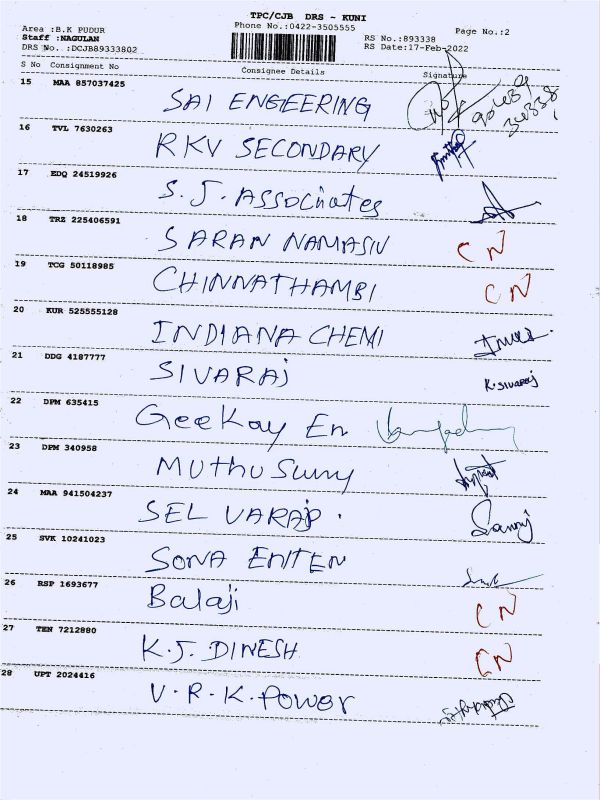 TPC/CJB DRS ~ KUNI
Area :B.K PUDUR Phone No.:0422-3505555
Staff :NAGULAN RS No.:893338 Page No.:2
DRS No. :DCJB89333802 RS Date:17-Feb-2022
S No Consignment No Consignee Details Signature
15 MAA 857037425
SAI ENGEERING
16 TVL 7630263
RKV SECONDARY
17 EDQ 24519926
S.J. ASSOCiates
18 TRZ 225406591
SARAN NAMASIV CN
19 TCG 50118985
CHINNATHAMBI CN
20 KUR 525555128
INDIANA CHEMI
21 DDG 4187777
SIVARAJ K.SIVARAJ
22 DPM 635415
GeeKay En
23 DPM 340958
MUTHU Suny
24 MAA 941504237
SEL VARAJ .
25 SVK 10241023
SONA ENTEN
26 RSP 1693677
Balaji CN
27 TEN 7212880
K.J. DINESH CN
28 UPT 2024416
V.R.K.Power